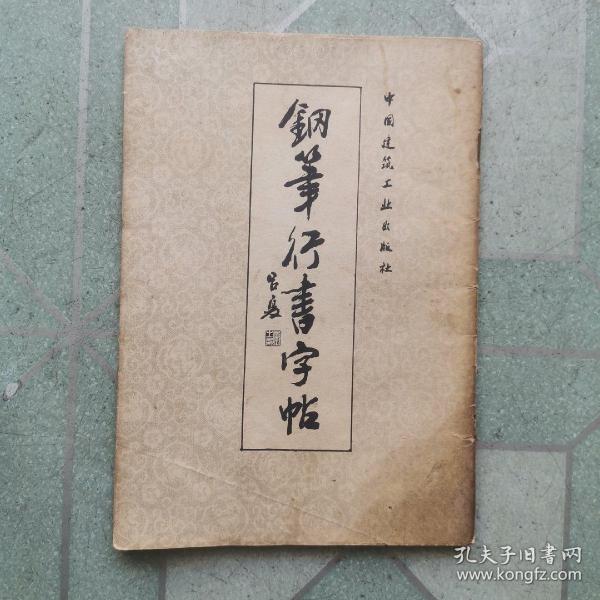 中国建筑工业出版社
鋼筆行書字帖
孔夫子旧书网
www.kongfz.com